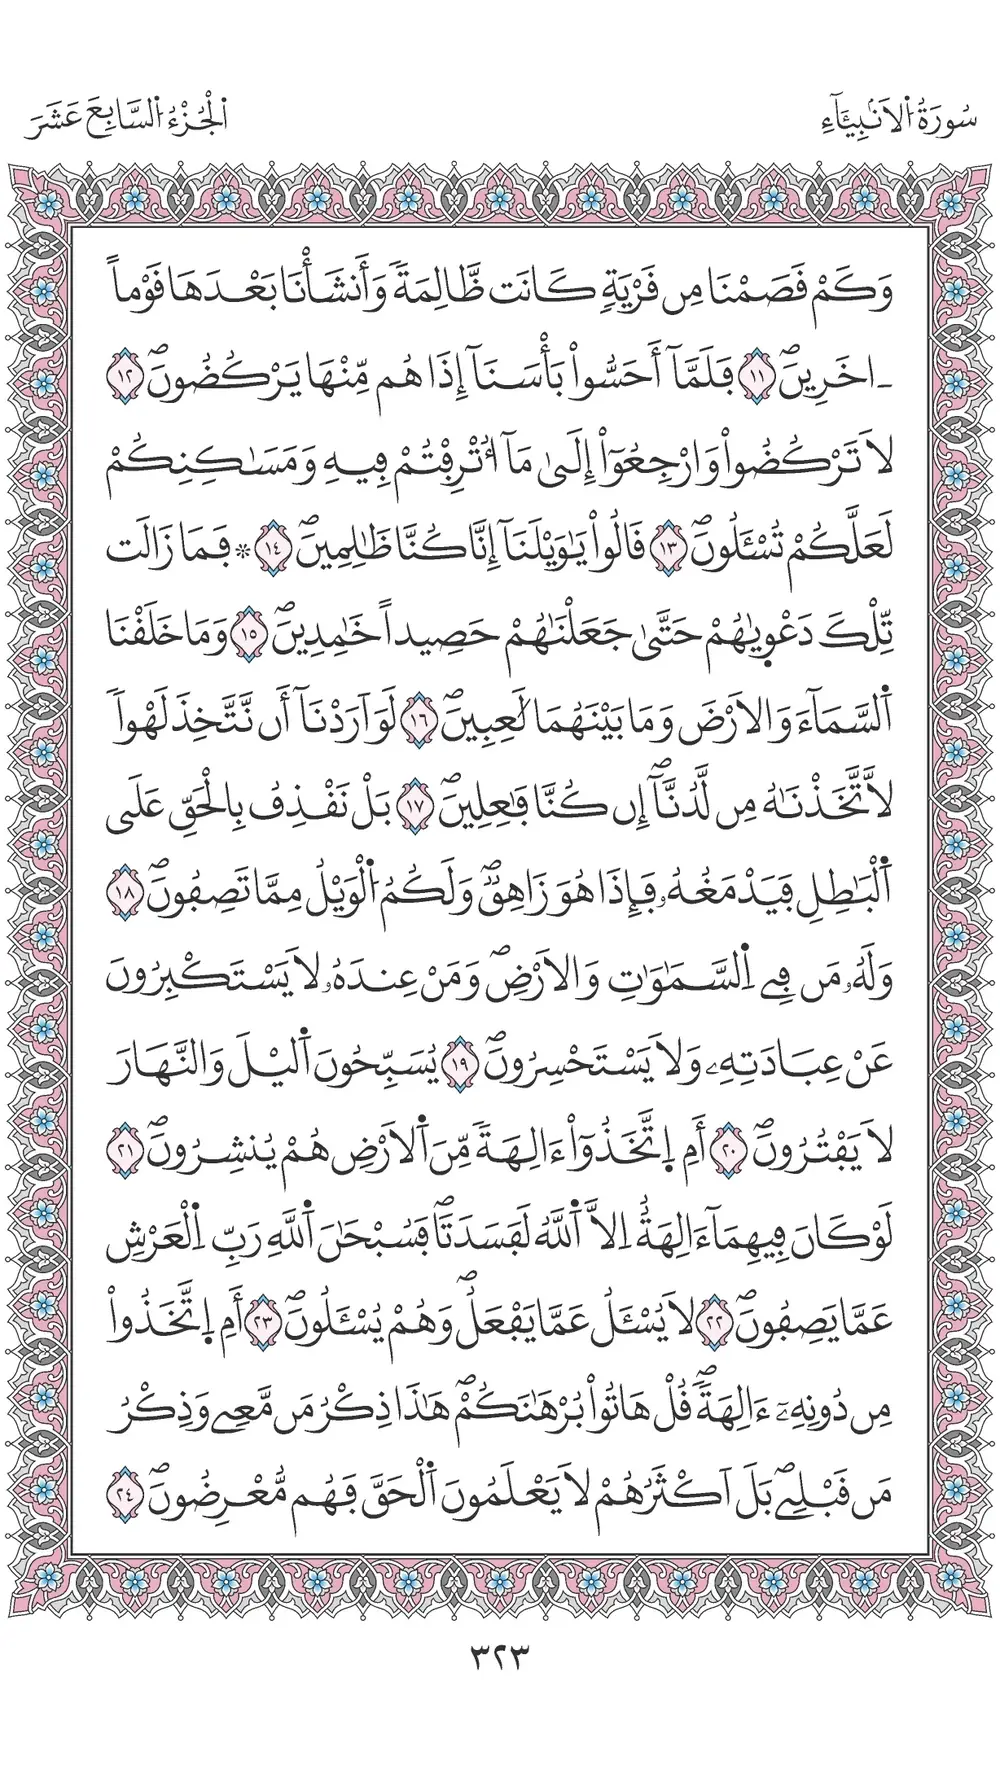 سُورَةُ اُلَانۢبِيَآءِ
اَلْجُزْءُ اُلسَّابِعَ عَشَرَ
وَكَمْ قَصَمْنَا مِن قَرْيَةٖ كَانَت ظَّالِمَةٗ وَأَنشَأْنَا بَعْدَهَا قَوْماً
ـاخَرِينَۖ ١١ فَلَمَّآ أَحَسُّواْ بَأْسَنَآ إِذَا هُم مِّنْهَا يَرْكُضُونَۖ ١٢
لَا تَرْكُضُواْ وَارْجِعُوٓاْ إِلَىٰ مَآ أُتْرِفْتُمْ فِيهِ وَمَسَٰكِنِكُمْ
لَعَلَّكُمْ تُسْـَٔلُونَۖ ١٣ قَالُواْ يَٰوَيْلَنَآ إِنَّا كُنَّا ظَٰلِمِينَۖ ١٤ * فَمَا زَالَت
تِّلْكَ دَعْوٜيٰهُمْ حَتَّىٰ جَعَلْنَٰهُمْ حَصِيداً خَٰمِدِينَۖ ١٥ وَمَا خَلَقْنَا
اَ۬لسَّمَآءَ وَالَارْضَ وَمَا بَيْنَهُمَا لَٰعِبِينَۖ ١٦ لَوَ اَرَدْنَآ أَن نَّتَّخِذَ لَهْواٗ
لَّاتَّخَذْنَٰهُ مِن لَّدُنَّآۖ إِن كُنَّا فَٰعِلِينَۖ ١٧ بَلْ نَقْذِفُ بِالْحَقِّ عَلَى
اَ۬لْبَٰطِلِ فَيَدْمَغُهُۥ فَإِذَا هُوَ زَاهِقٞۖ وَلَكُمُ اُ۬لْوَيْلُ مِمَّا تَصِفُونَۖ ١٨
وَلَهُۥ مَن فِے اِ۬لسَّمَٰوَٰتِ وَالَارْضِۖ وَمَنْ عِندَهُۥ لَا يَسْتَكْبِرُونَ
عَنْ عِبَادَتِهِۦ وَلَا يَسْتَحْسِرُونَۖ ١٩ يُسَبِّحُونَ اَ۬ليْلَ وَالنَّهَارَ
لَا يَفْتُرُونَۖ ٢٠ أَمِ اِ۪تَّخَذُوٓاْ ءَالِهَةٗ مِّنَ اَ۬لَارْضِ هُمْ يُنشِرُونَۖ ٢١
لَوْ كَانَ فِيهِمَآ ءَالِهَةٌ اِلَّا اَ۬للَّهُ لَفَسَدَتَاۖ فَسُبْحَٰنَ اَ۬للَّهِ رَبِّ اِ۬لْعَرْشِ
عَمَّا يَصِفُونَۖ ٢٢ لَا يُسْـَٔلُ عَمَّا يَفْعَلُۖ وَهُمْ يُسْـَٔلُونَۖ ٢٣ أَمِ اِ۪تَّخَذُواْ
مِن دُونِهِۦٓ ءَالِهَةٗۖ قُلْ هَاتُواْ بُرْهَٰنَكُمْۖ هَٰذَا ذِكْرُ مَن مَّعِے وَذِكْرُ
مَن قَبْلِےۖ بَلَ اَكْثَرُهُمْ لَا يَعْلَمُونَ اَ۬لْحَقَّ فَهُم مُّعْرِضُونَۖ ٢٤
٣٢٣